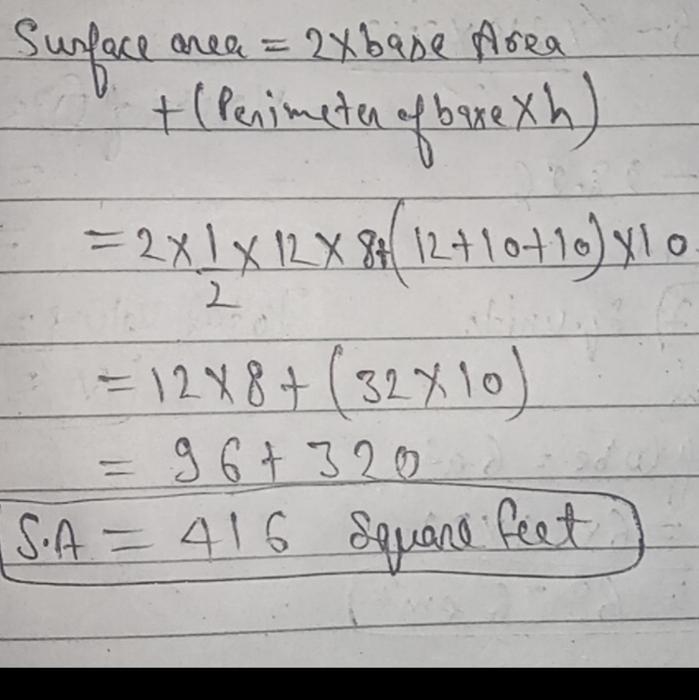 Surface area = 2×base Area
+ (Perimeter of base × h)
= 2 × 1/2 × 12 × 8 + (12+10+10) × 10
= 12 × 8 + (32 × 10)
= 96 + 320
S.A = 416 Square feet